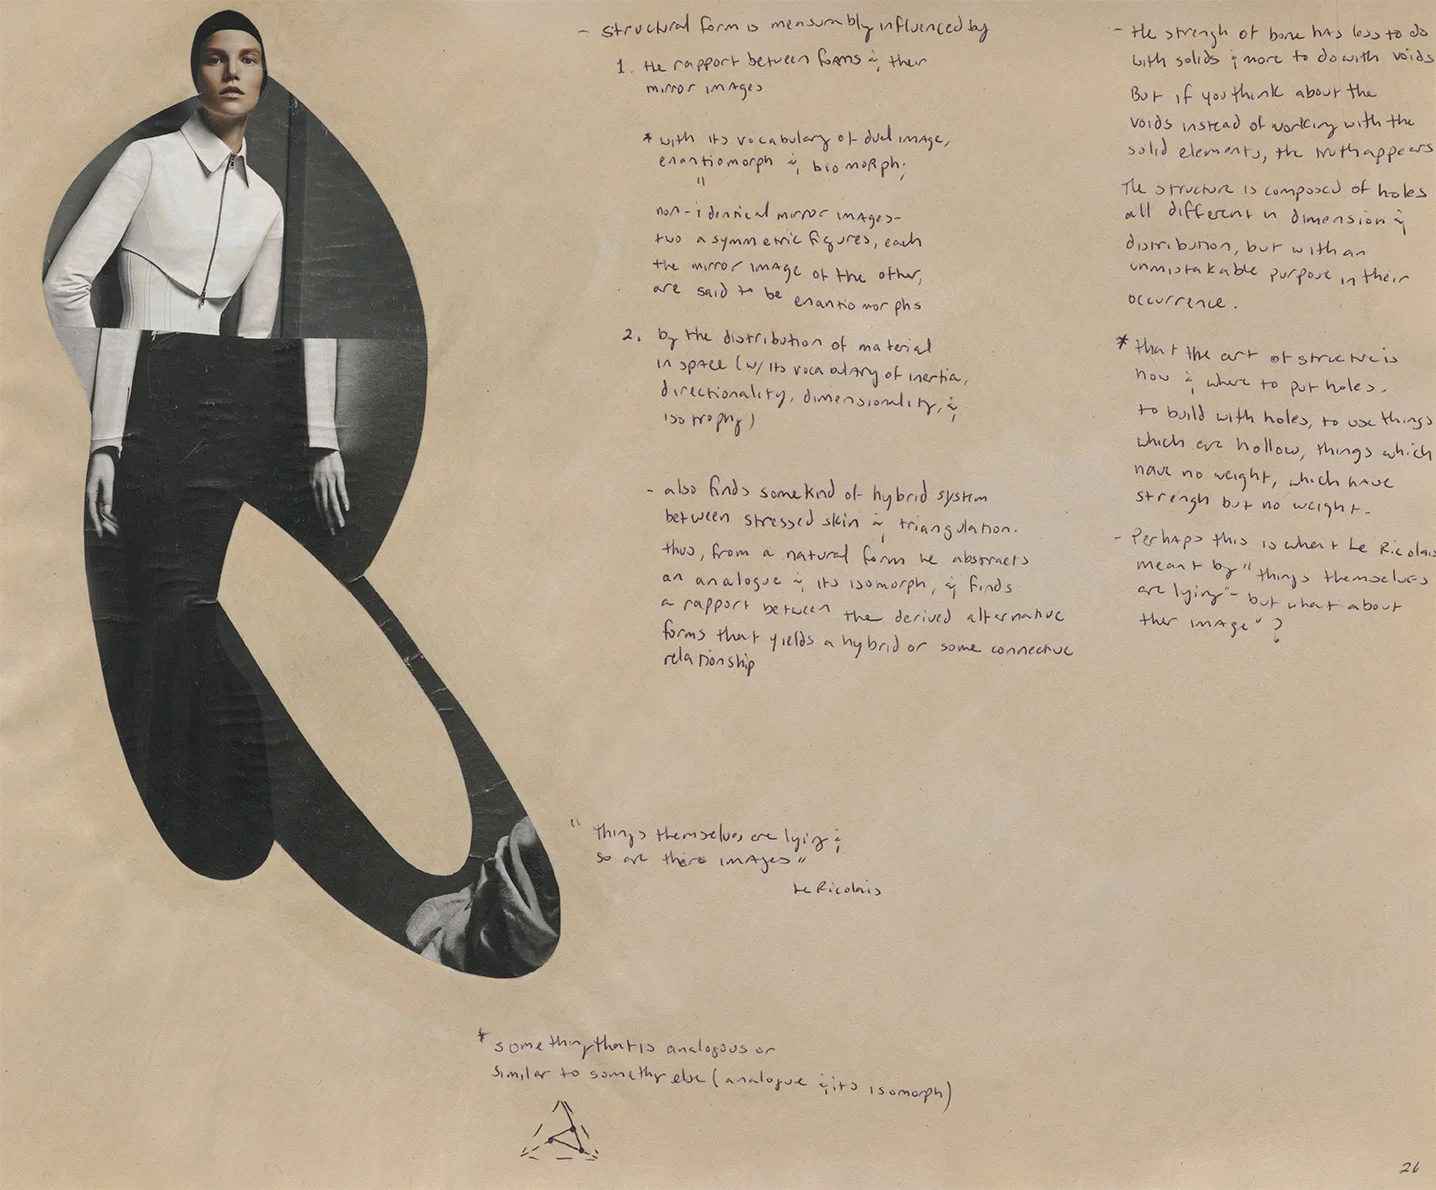 - structural form is measurably influenced by
1. the rapport between forms & their
mirror images
* with its vocabulary of dual image,
enantiomorph & biomorph;
"
non-identical mirror images-
two asymmetric figures, each
the mirror image of the other,
are said to be enantiomorphs
2. by the distribution of material
in space (w/ its vocabulary of inertia,
directionality, dimensionality, &
isotrophy)
- also finds some kind of hybrid system
between stressed skin & triangulation.
thus, from a natural form he abstracts
an analogue & its isomorph, & finds
a rapport between the derived alternative
forms that yields a hybrid or some connective
relationship
"things themselves are lying &
so are there images"
Le Ricolais
* something that is analogous or
similar to something else (analogue & its isomorph)
- the strengh of bone has less to do
with solids & more to do with voids
But if you think about the
voids instead of working with the
solid elements, the truth appears
The structure is composed of holes
all different in dimension &
distribution, but with an
unmistakable purpose in their
occurrence.
* that the art of structure is
how & where to put holes.
to build with holes, to use things
which are hollow, things which
have no weight, which have
strengh but no weight.
- Perhaps this is what Le Ricolais
meant by "things themselves
are lying" - but what about
ther image"?
26